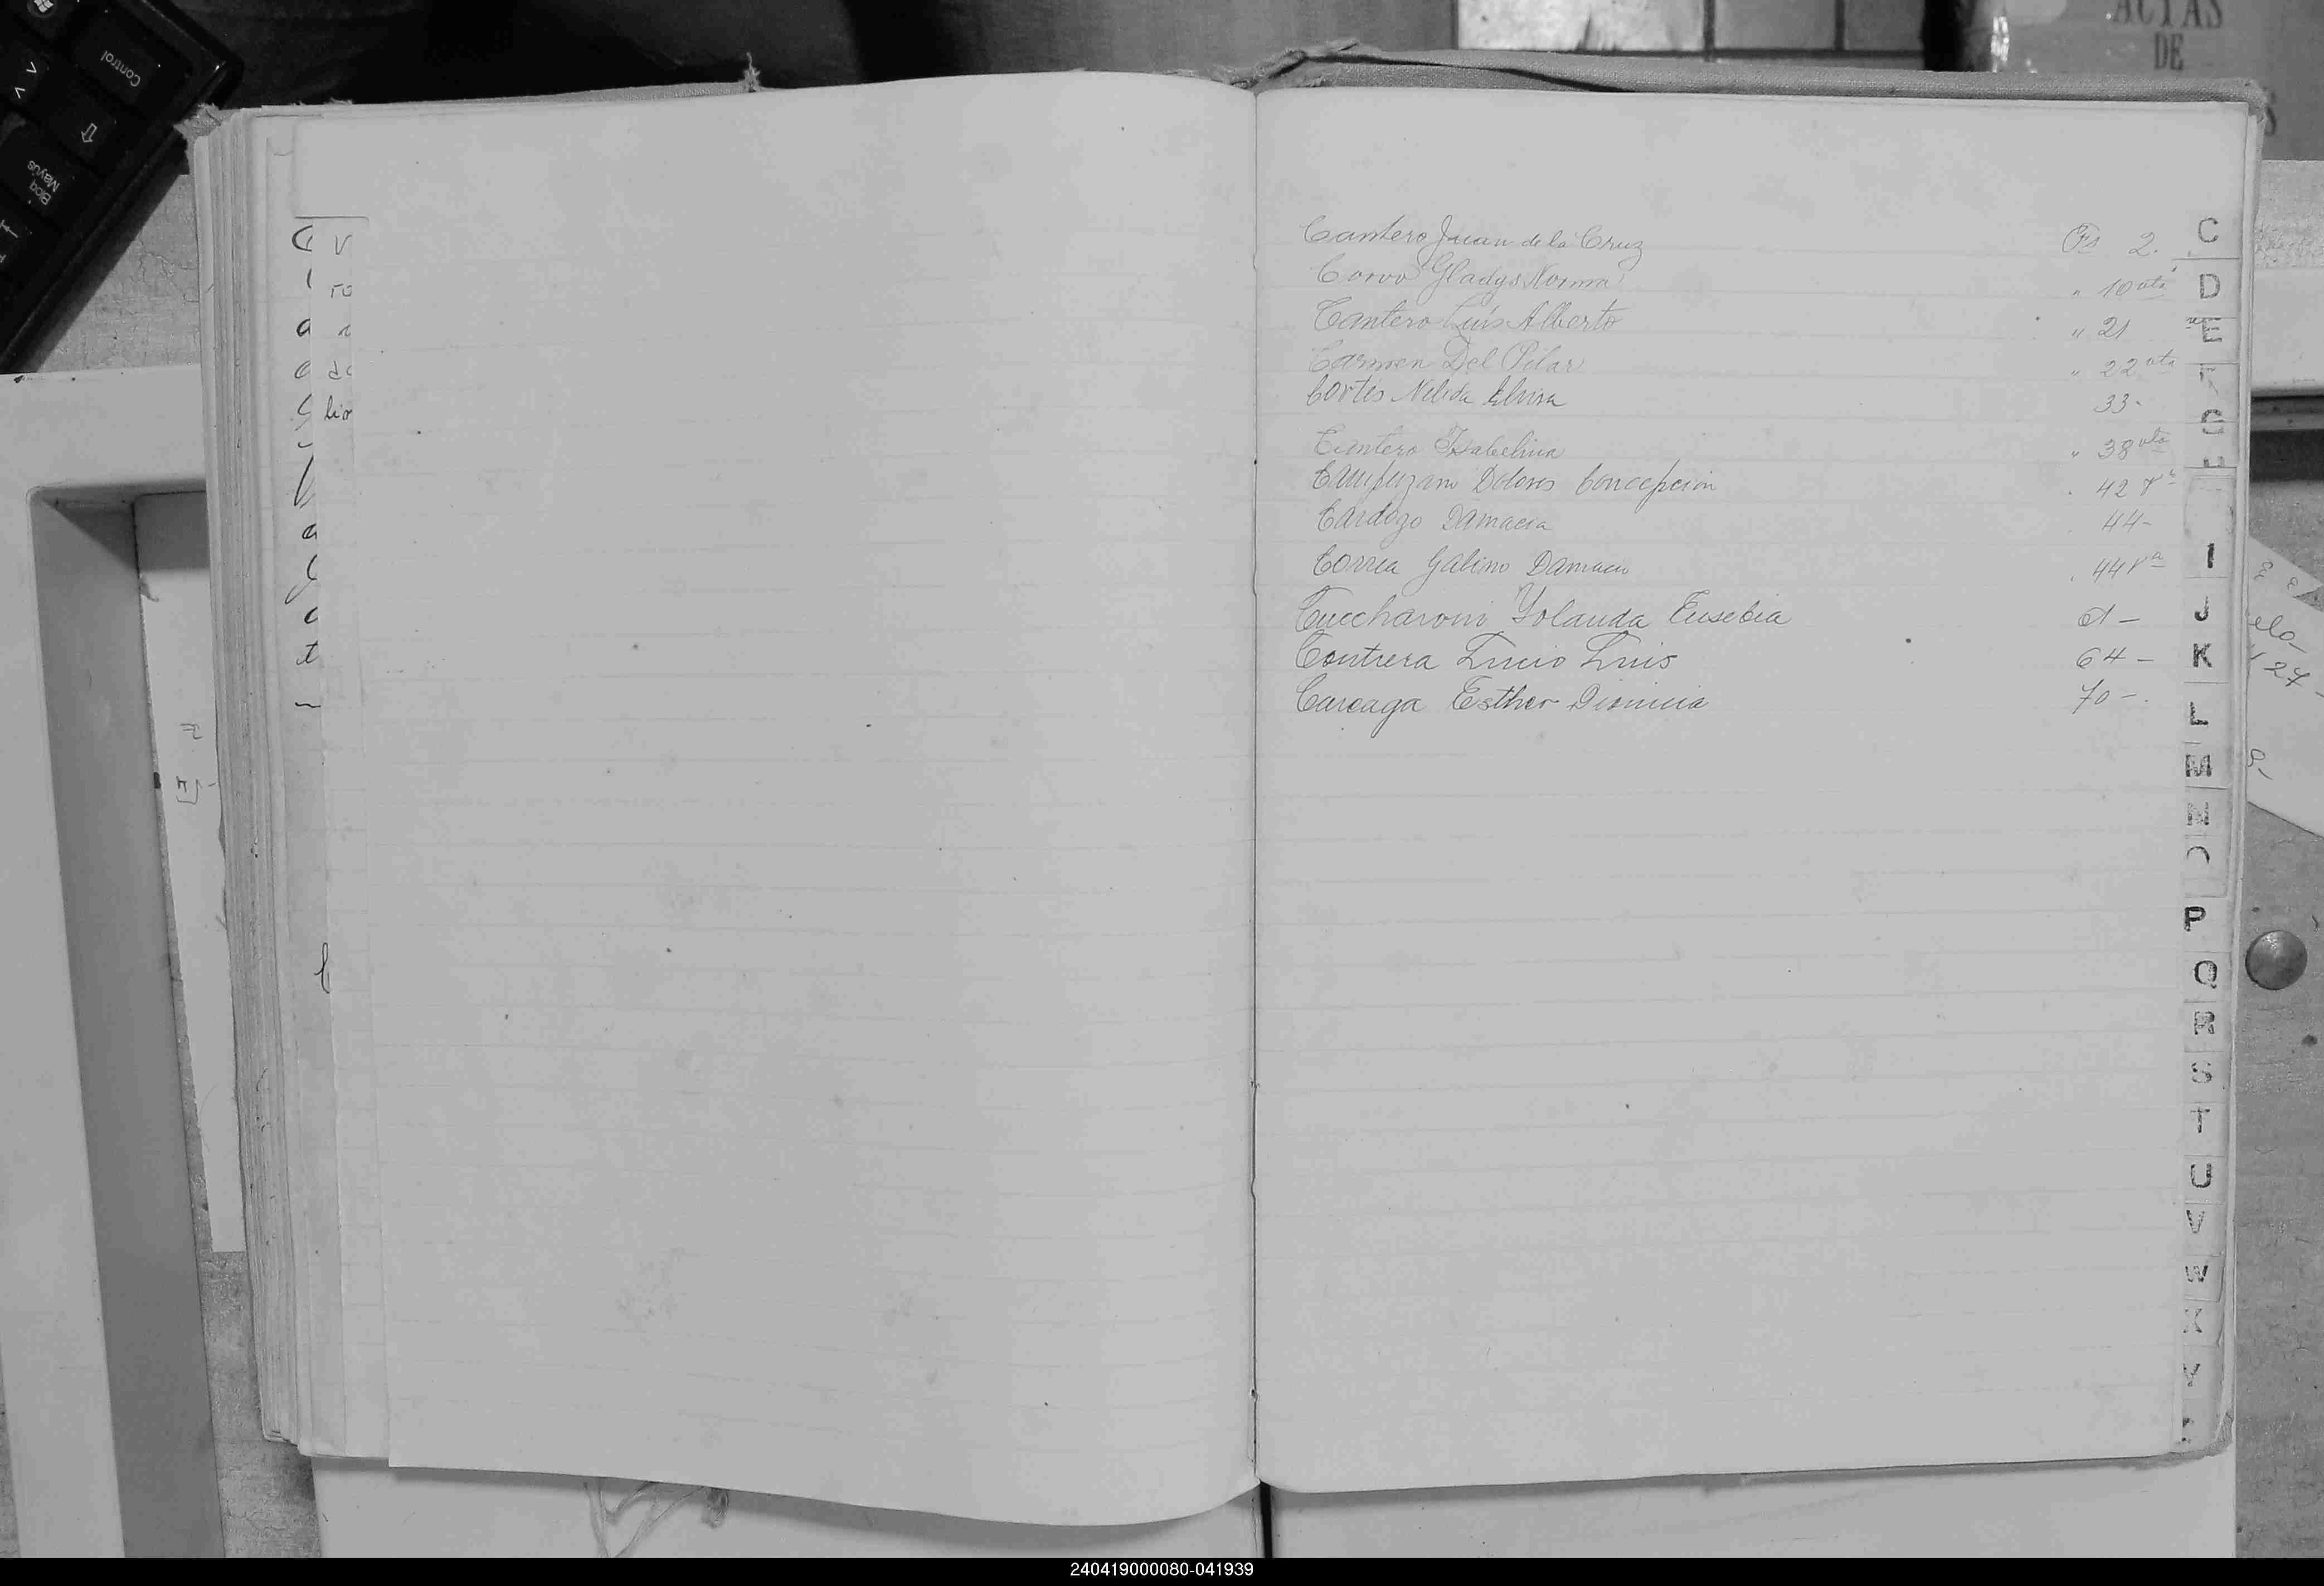 Control
Bloq
Mayús
ACTAS
DE
Cantero Juan de la Cruz Fs 2.
Corvo Gladys Norma " 10 vta
Cantero Luis Alberto " 21
Carmen Del Pilar " 22 vta
Cortés Nelida Elvira 33-
Cantero Isabelina " 38 vta
Campuzano Dolores Concepcion 42 va
Cardozo Damacia 44-
Correa Galino Damacio 44 va
Cuccharoni Yolanda Eusebia
Contrera Lucio Luis 64-
Careaga Esther Dionicia 70-
C
D
E
F
G
I
J
K
L
M
N
O
P
Q
R
S
T
U
V
W
X
Y
240419000080-041939